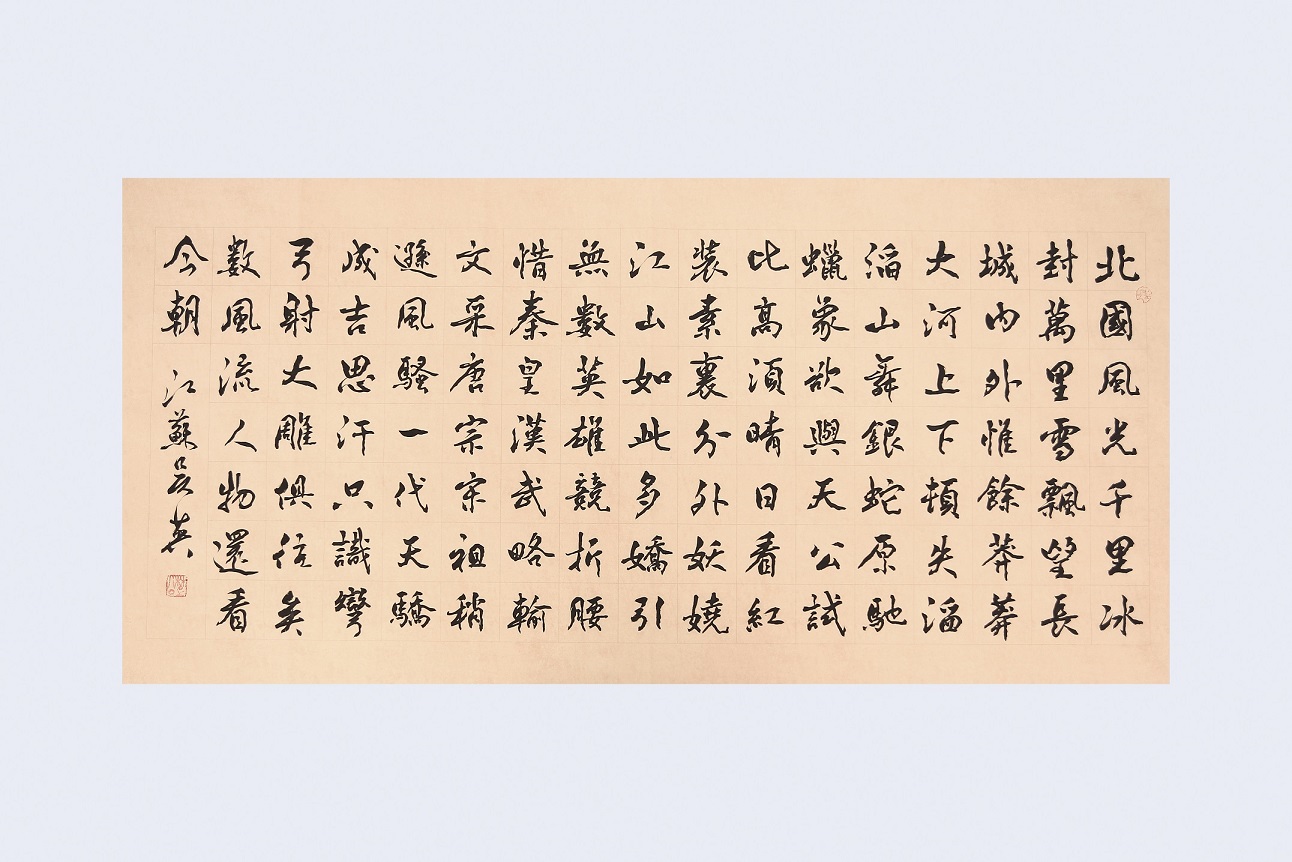 北國風光千里冰
封萬里雪飄望長
城内外惟餘莽莽
大河上下頓失滔
滔山舞銀蛇原馳
蠟象欲與天公試
比高須晴日看紅
装素裹分外妖嬈
江山如此多嬌引
無數英雄競折腰
惜秦皇漢武略輸
文采唐宗宋祖稍
遜風騷一代天驕
成吉思汗只識彎
弓射大雕俱往矣
数風流人物還看
今朝 江蘇吴英